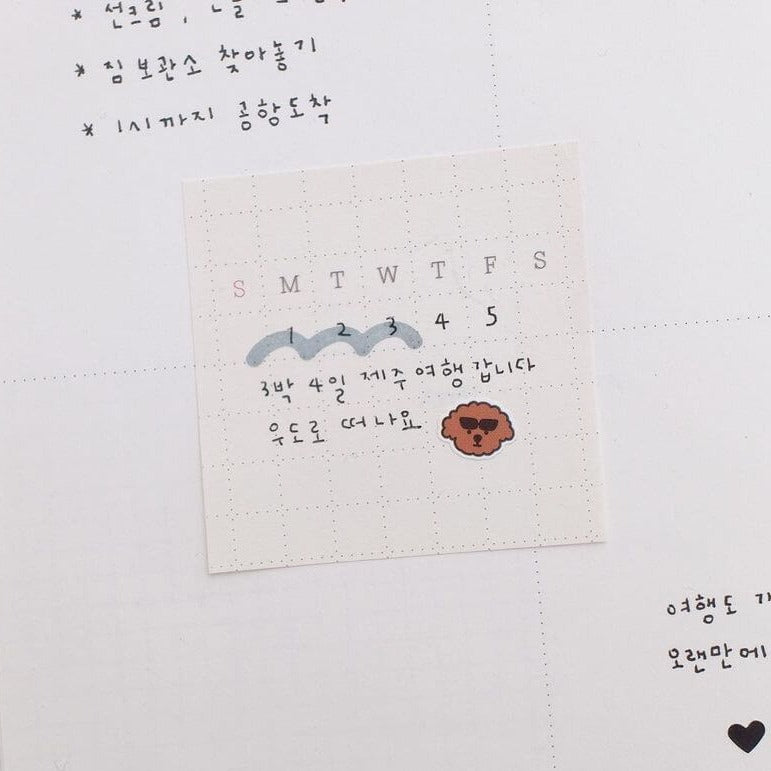 * 선크림,
* 짐 보관소 찾아놓기
* 1시까지 공항도착
S M T W T F S
1 2 3 4 5
3박 4일 제주 여행 갑니다
우도로 떠나요
여행도
오랜만에
♥